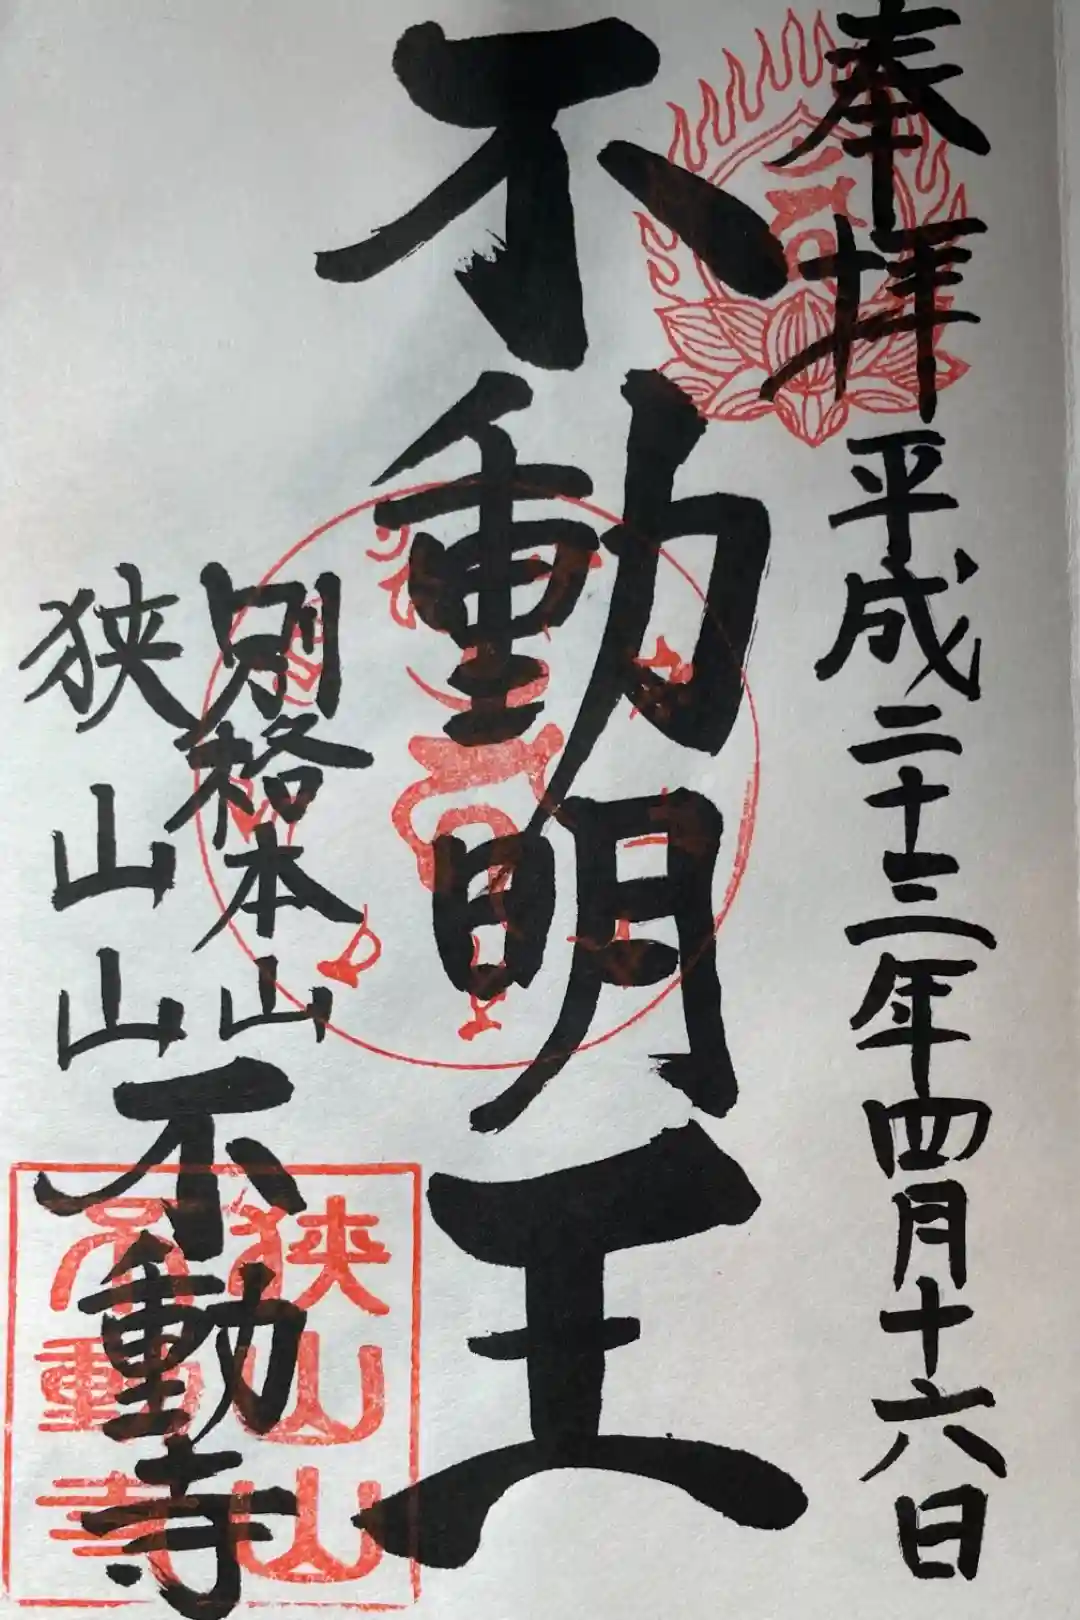 奉拝 平成二十三年四月十六日
不動明王
別格本山
狭山山不動寺
狭山山
不動寺